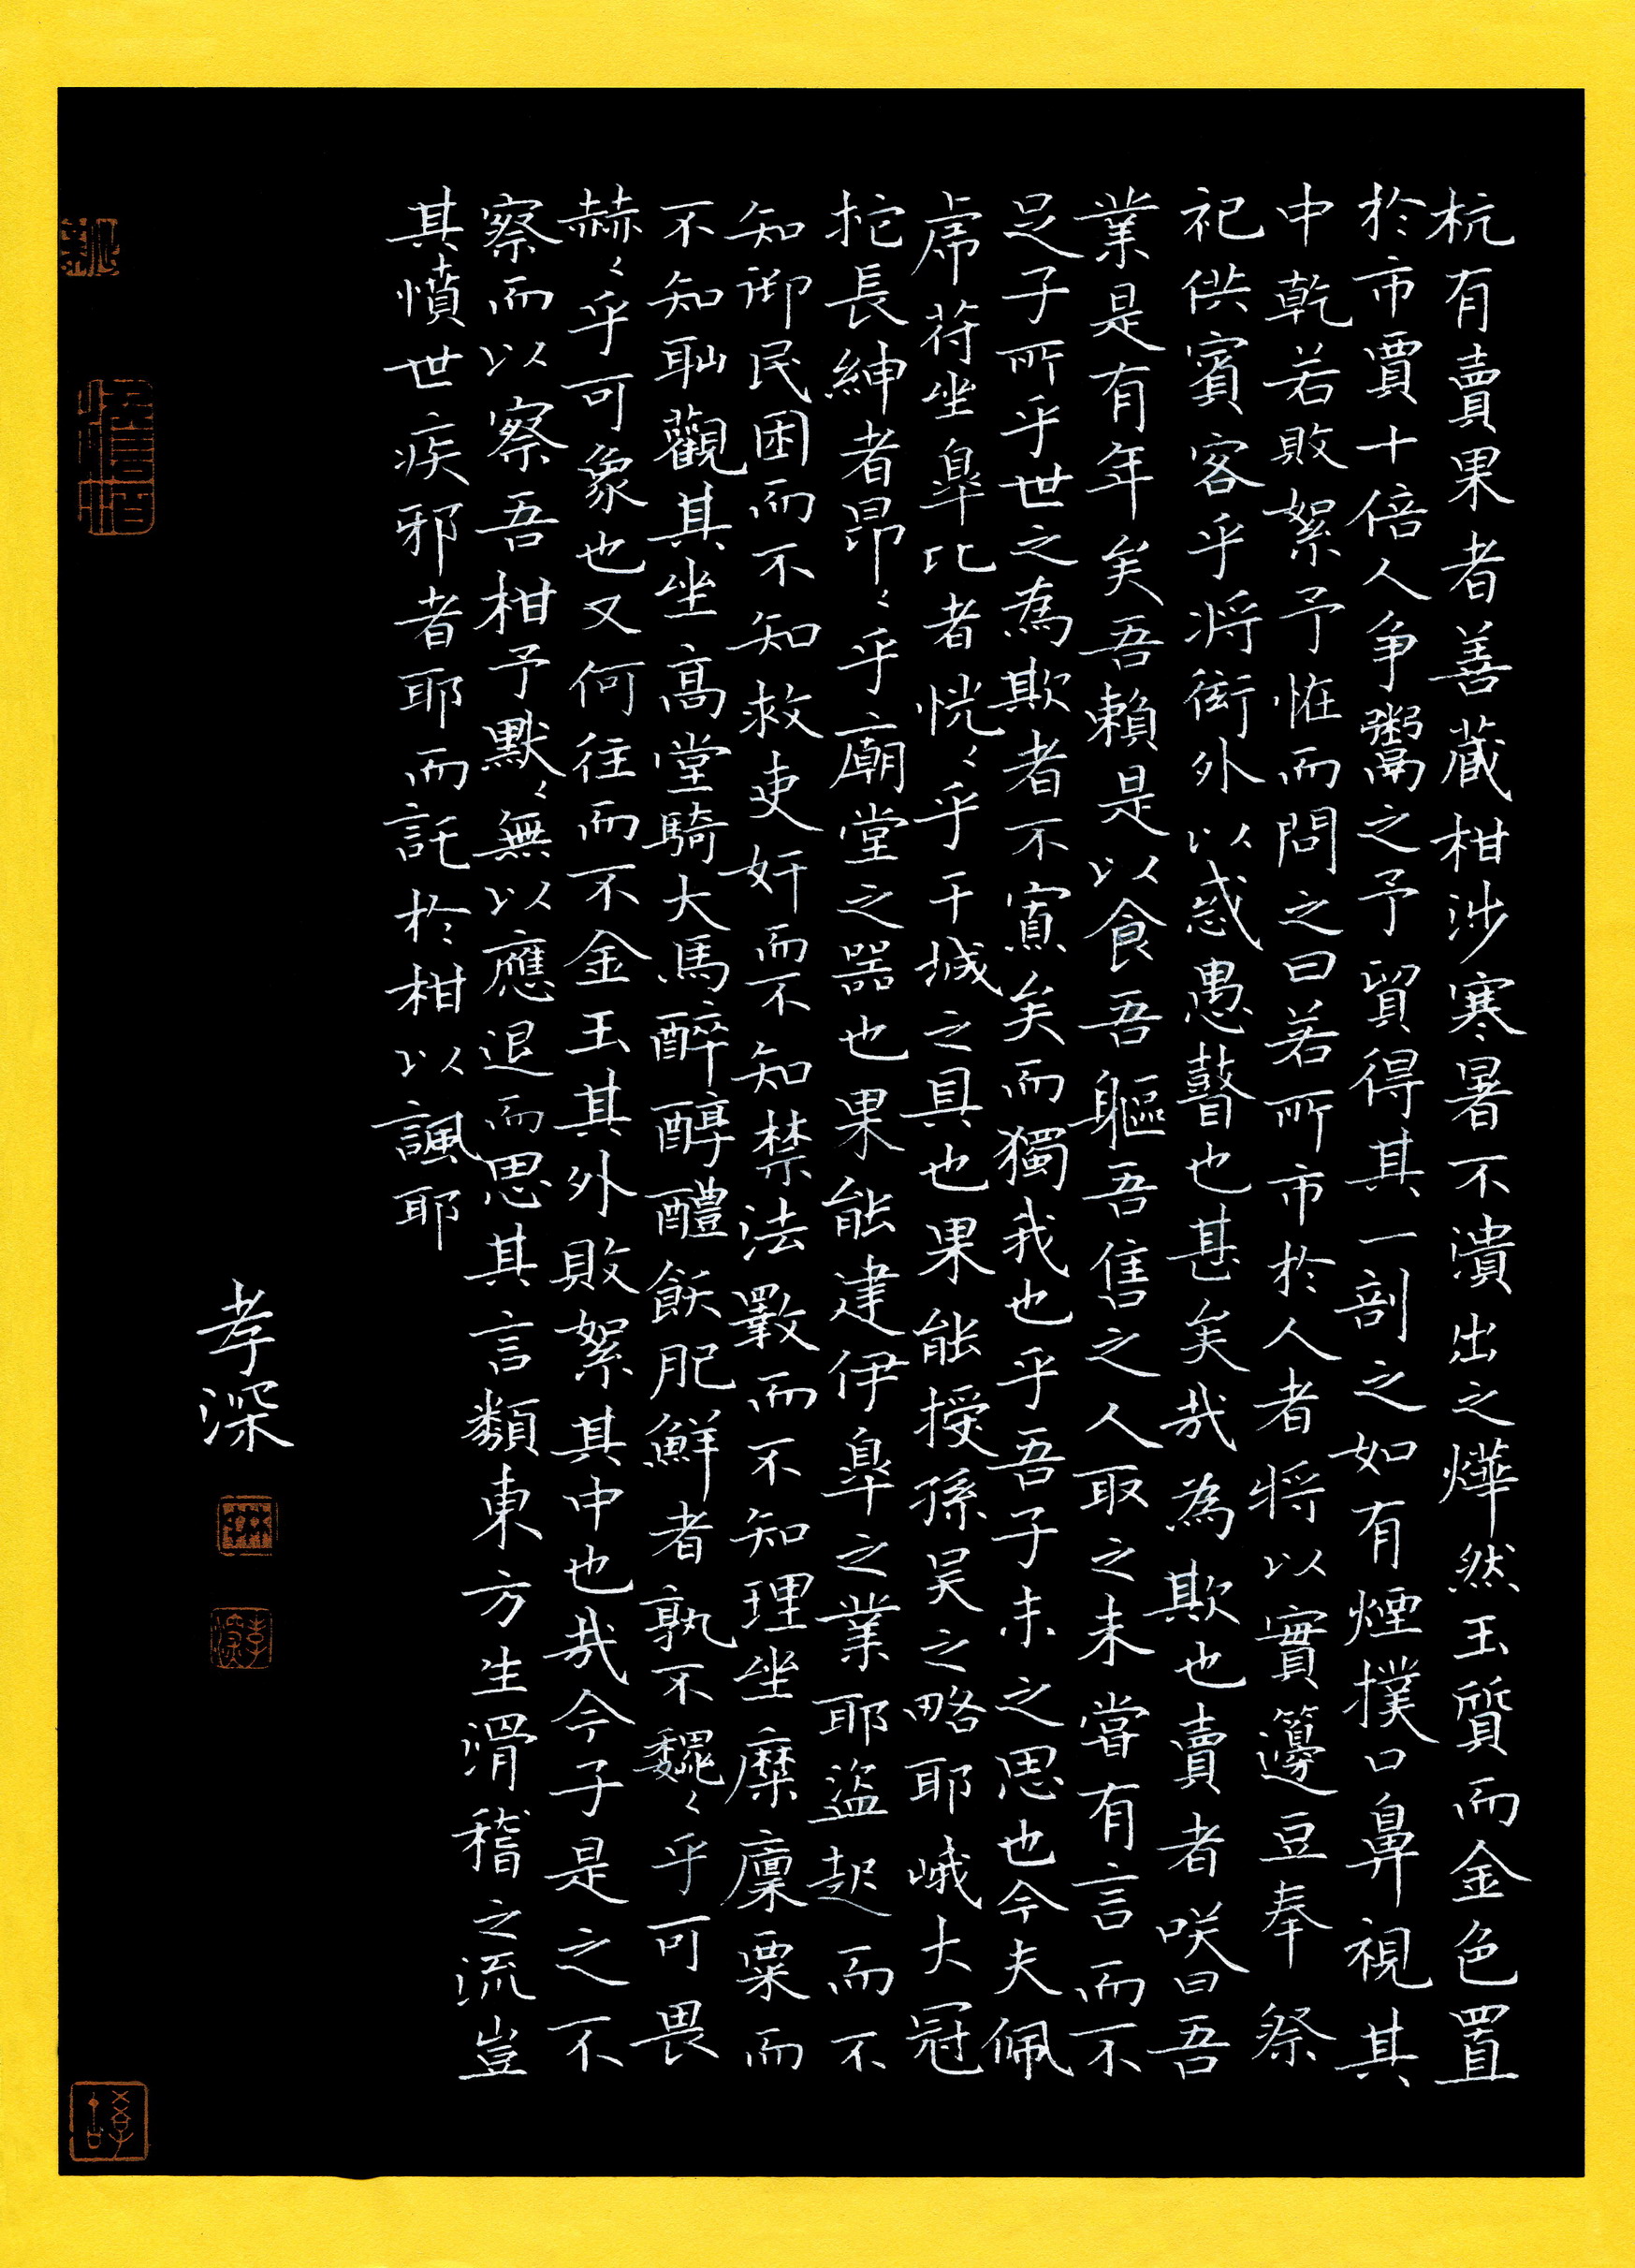 杭有賣果者善藏柑涉寒暑不潰出之燁然玉質而金色置
於市賈十倍人爭鬻之予貿得其一剖之如有煙撲口鼻視其
中乾若敗絮予恠而問之曰若所市於人者將以實籩豆奉祭
祀供賓客乎將衒外以惑愚瞽也甚矣哉為欺也賣者咲曰吾
業是有年矣吾賴是以食吾軀吾售之人取之未嘗有言而不
足子所乎世之為欺者不寡矣而獨我也乎吾子未之思也今夫佩
虎符坐皐比者恍〻乎干城之具也果能授孫吳之略耶峨大冠
拕長紳者昂〻乎廟堂之器也果能建伊皐之業耶盜起而不
知御民困而不知救吏奸而不知禁法斁而不知理坐糜廩粟而
不知恥觀其坐高堂騎大馬醉醇醴飫肥鮮者孰不巍〻乎可畏
赫〻乎可象也又何往而不金玉其外敗絮其中也哉今子是之不
察而以察吾柑予默〻無以應退而思其言類東方生滑稽之流豈
其憤世疾邪者耶而託於柑以諷耶
孝深